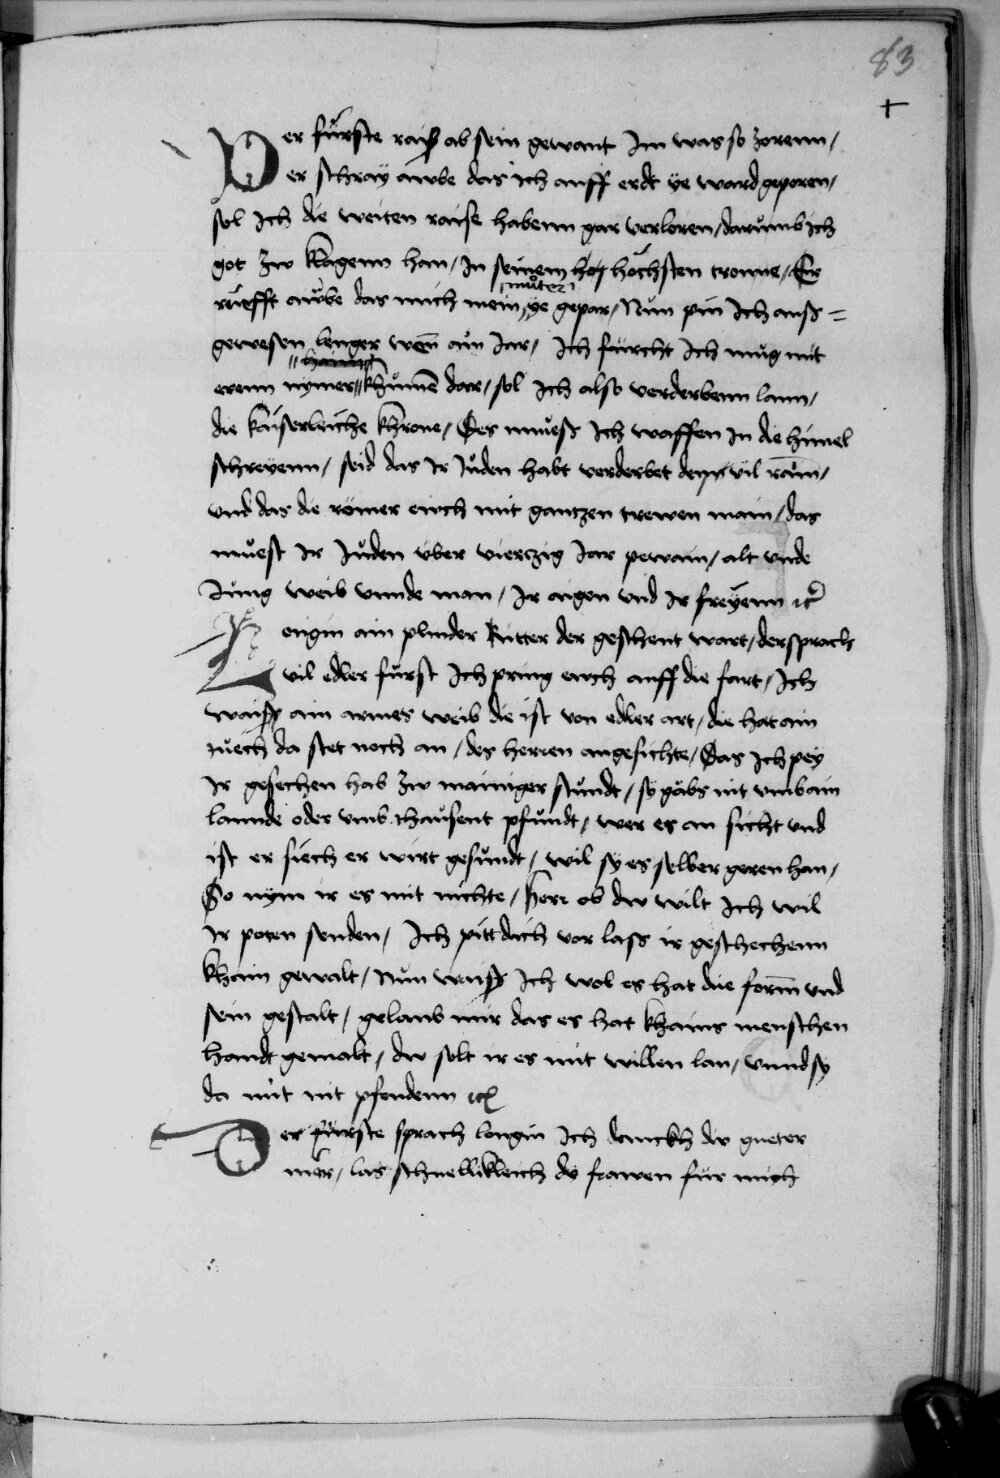 83
+
Der fürste raiss ab sein gewant Im was so zorenn /
er schray awbe das ich auff erdt ye ward geporen /
sol Ich die weiten raise habenn gar verloren / darumb ich
got zw klagenn han / In seinem hof höchsten tronne / Er
rüefft awbe das mich mein muter ye gepar / Nun pin Ich auss =
gewesen lenger wen ain Jar / Ich fürcht Ich mug mit
erenn nymer haim khumen dar / sol Ich also verderbenn lann /
die kayserleiche khrone / Des muess Ich waffen In die himel
schreyenn / seid das Ir Juden habt verderbet den vil rain /
vnd das die römer euch mit gantzen trewen main / das
muest Ir Juden vber viertzig Jar pewain / alt vnde
Jung weib vnnde man / Ir aigen vnd Ir freyenn etc
Longin ain plinder Ritter der geschent wart / der sprach
vil edler fürst Ich pring euch auff die fart / Ich
waiss ain armes weib die ist von edler art / die hat ain
tuech da stet noch an / des herren angesichte / Das Ich pey
Ir gesechen hab zw maniger stundt / sy gäbs nit vmb ain
lannde oder vmb thausent pfundt / wer es an sicht vnd
ist er siech er wirt gesundt / wil sy es selber geren han /
So nym ir es mit nichte / herr ob dw wilt Ich wil
Ir poten senden / Ich pitt dich vor lass ir geschechenn
khain gewalt / Nun waiss Ich wol es hat die form vnd
sein gestalt / gelaub mir das es hat khains menschen
handt gemalt / dw solt ir es mit willen lan / vnnd sy
da mit nit pfendenn etc
Der fürste sprach longin Ich danckh dir gueter
mër / las schnellikleich dy frawen für mich